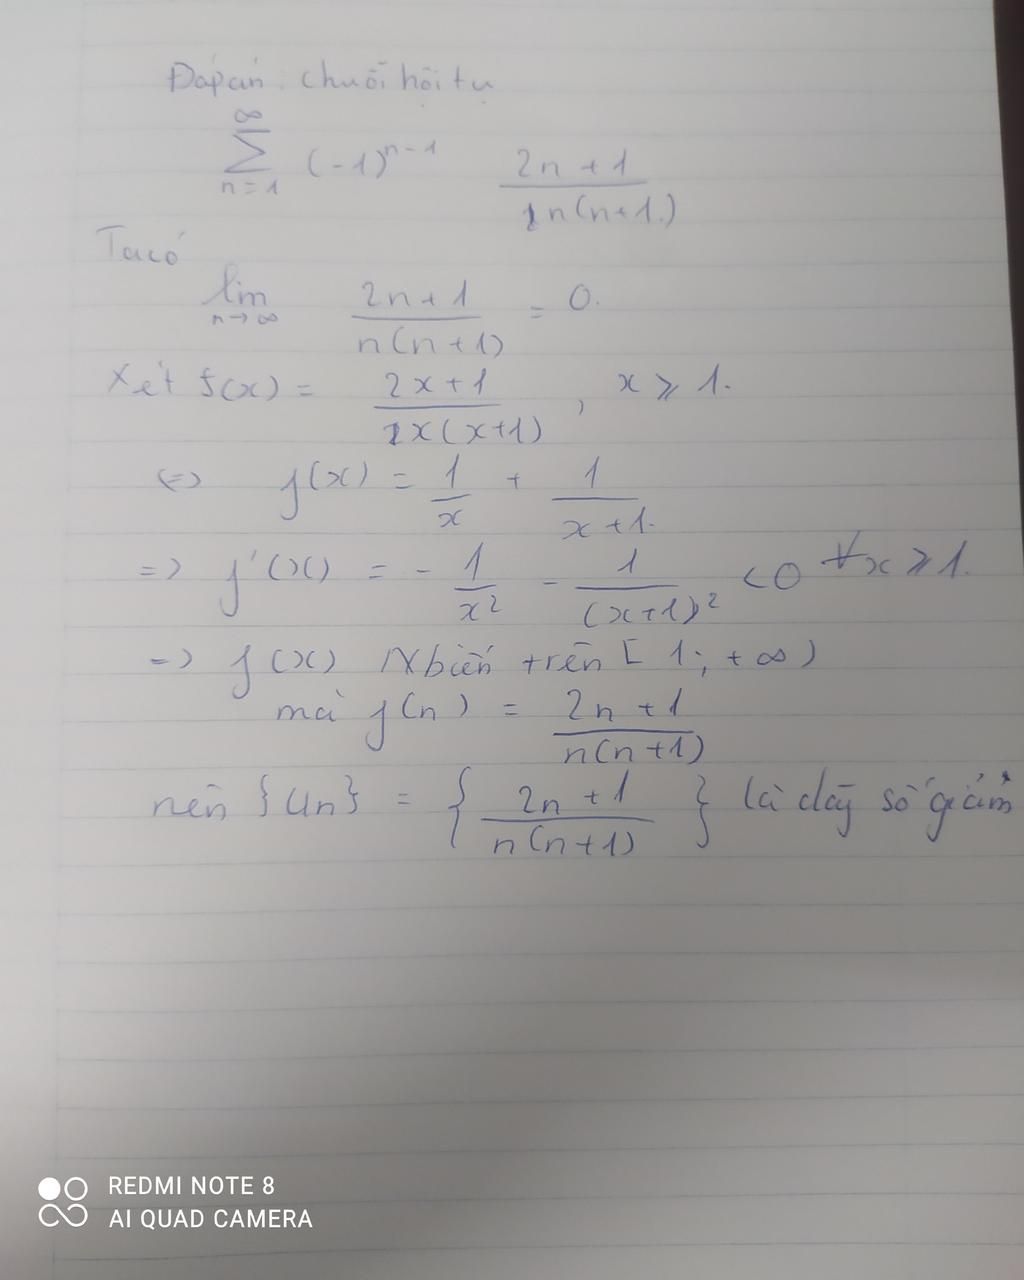 Đáp án: Chuỗi hội tụ
∞
∑ (-1)^{n-1} (2n+1)/(n(n+1))
n=1
Ta có
lim_{n→∞} (2n+1)/(n(n+1)) = 0.
Xét f(x) = (2x+1)/(x(x+1)), x ⩾ 1.
<=> f(x) = 1/x + 1/(x+1).
=> f'(x) = - 1/x² - 1/(x+1)² < 0 ∀x ⩾ 1.
=> f(x) N biến trên [1; +∞)
mà f(n) = (2n+1)/(n(n+1))
nên {Un} = { (2n+1)/(n(n+1)) } là dãy số giảm
REDMI NOTE 8
AI QUAD CAMERA